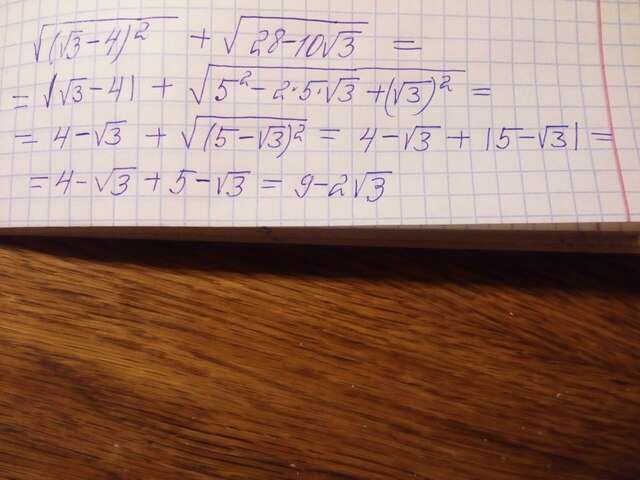 √(√3-4)² + √28-10√3 =
= |√3-4| + √5²-2·5·√3+(√3)² =
= 4-√3 + √(5-√3)² = 4-√3 + |5-√3| =
= 4-√3 + 5-√3 = 9-2√3